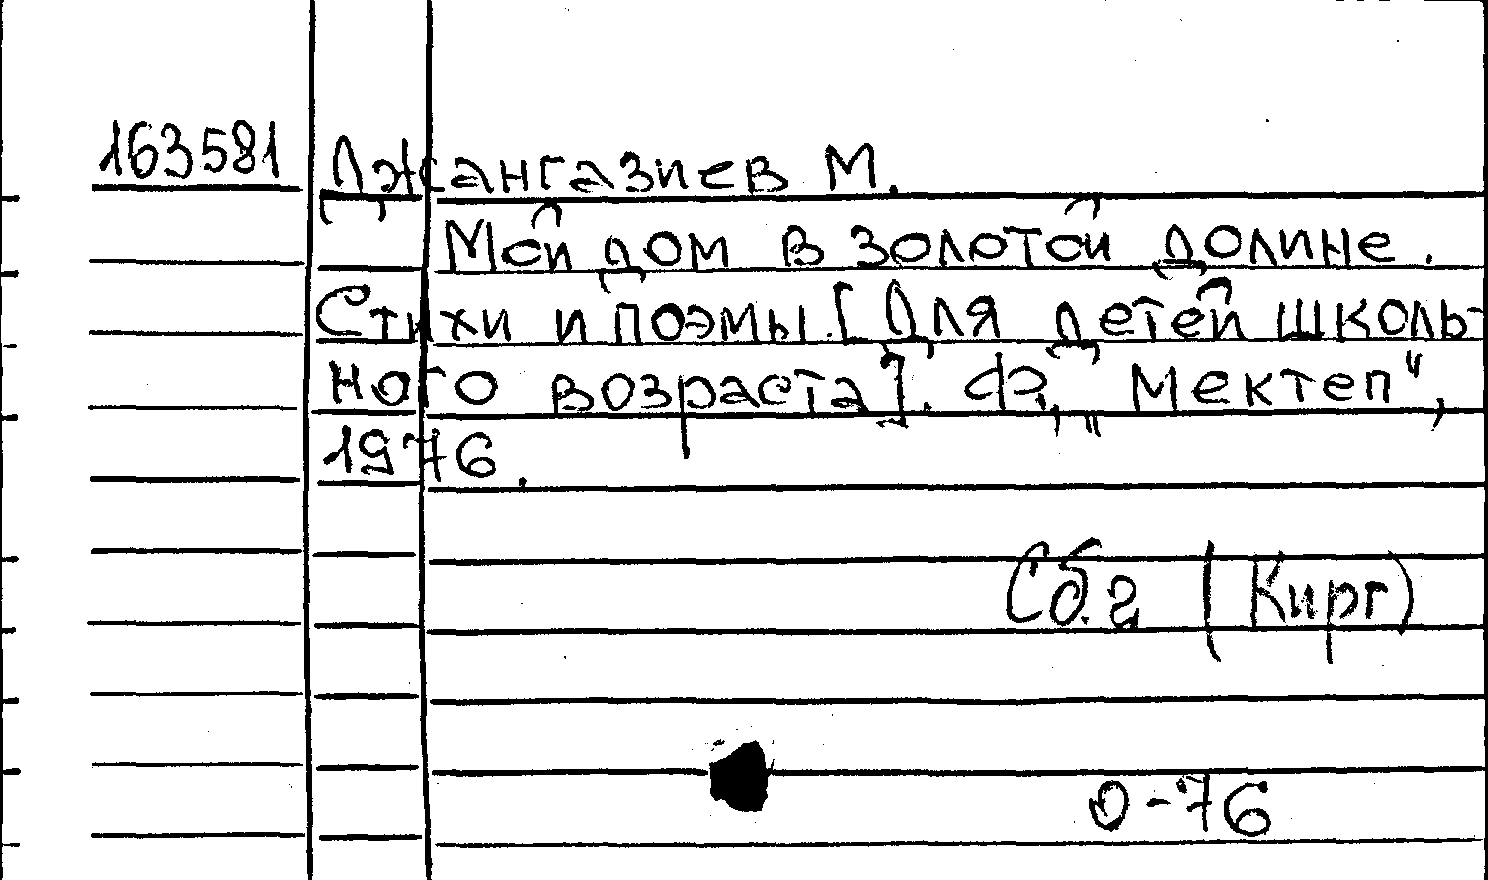 163581 Джангазиев М.
Мой дом в золотой долине.
Стихи и поэмы. [Для детей школь-
ного возраста]. Фр., „Мектеп",
1976.
Сб.2 (Кирг)
0-76